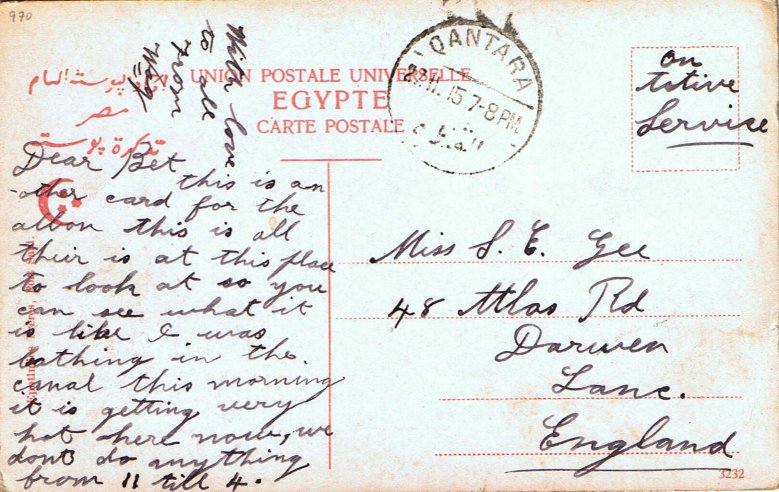 970
With love
to all
from
UNION POSTALE UNIVERSELLE
EGYPTE
CARTE POSTALE
مصر
QANTARA
15 7-8 PM
on
Active
Service
Dear Bet
this is an
other card for the
albon this is all
their is at this place
to look at so you
can see what it
is like I was
bathing in the.
canal this morning
it is getting very
hot here now, we
dont do anything
from 11 till 4.
Miss S. E. Gee
48 Atlas Rd
Darwen
Lanc.
England
3232